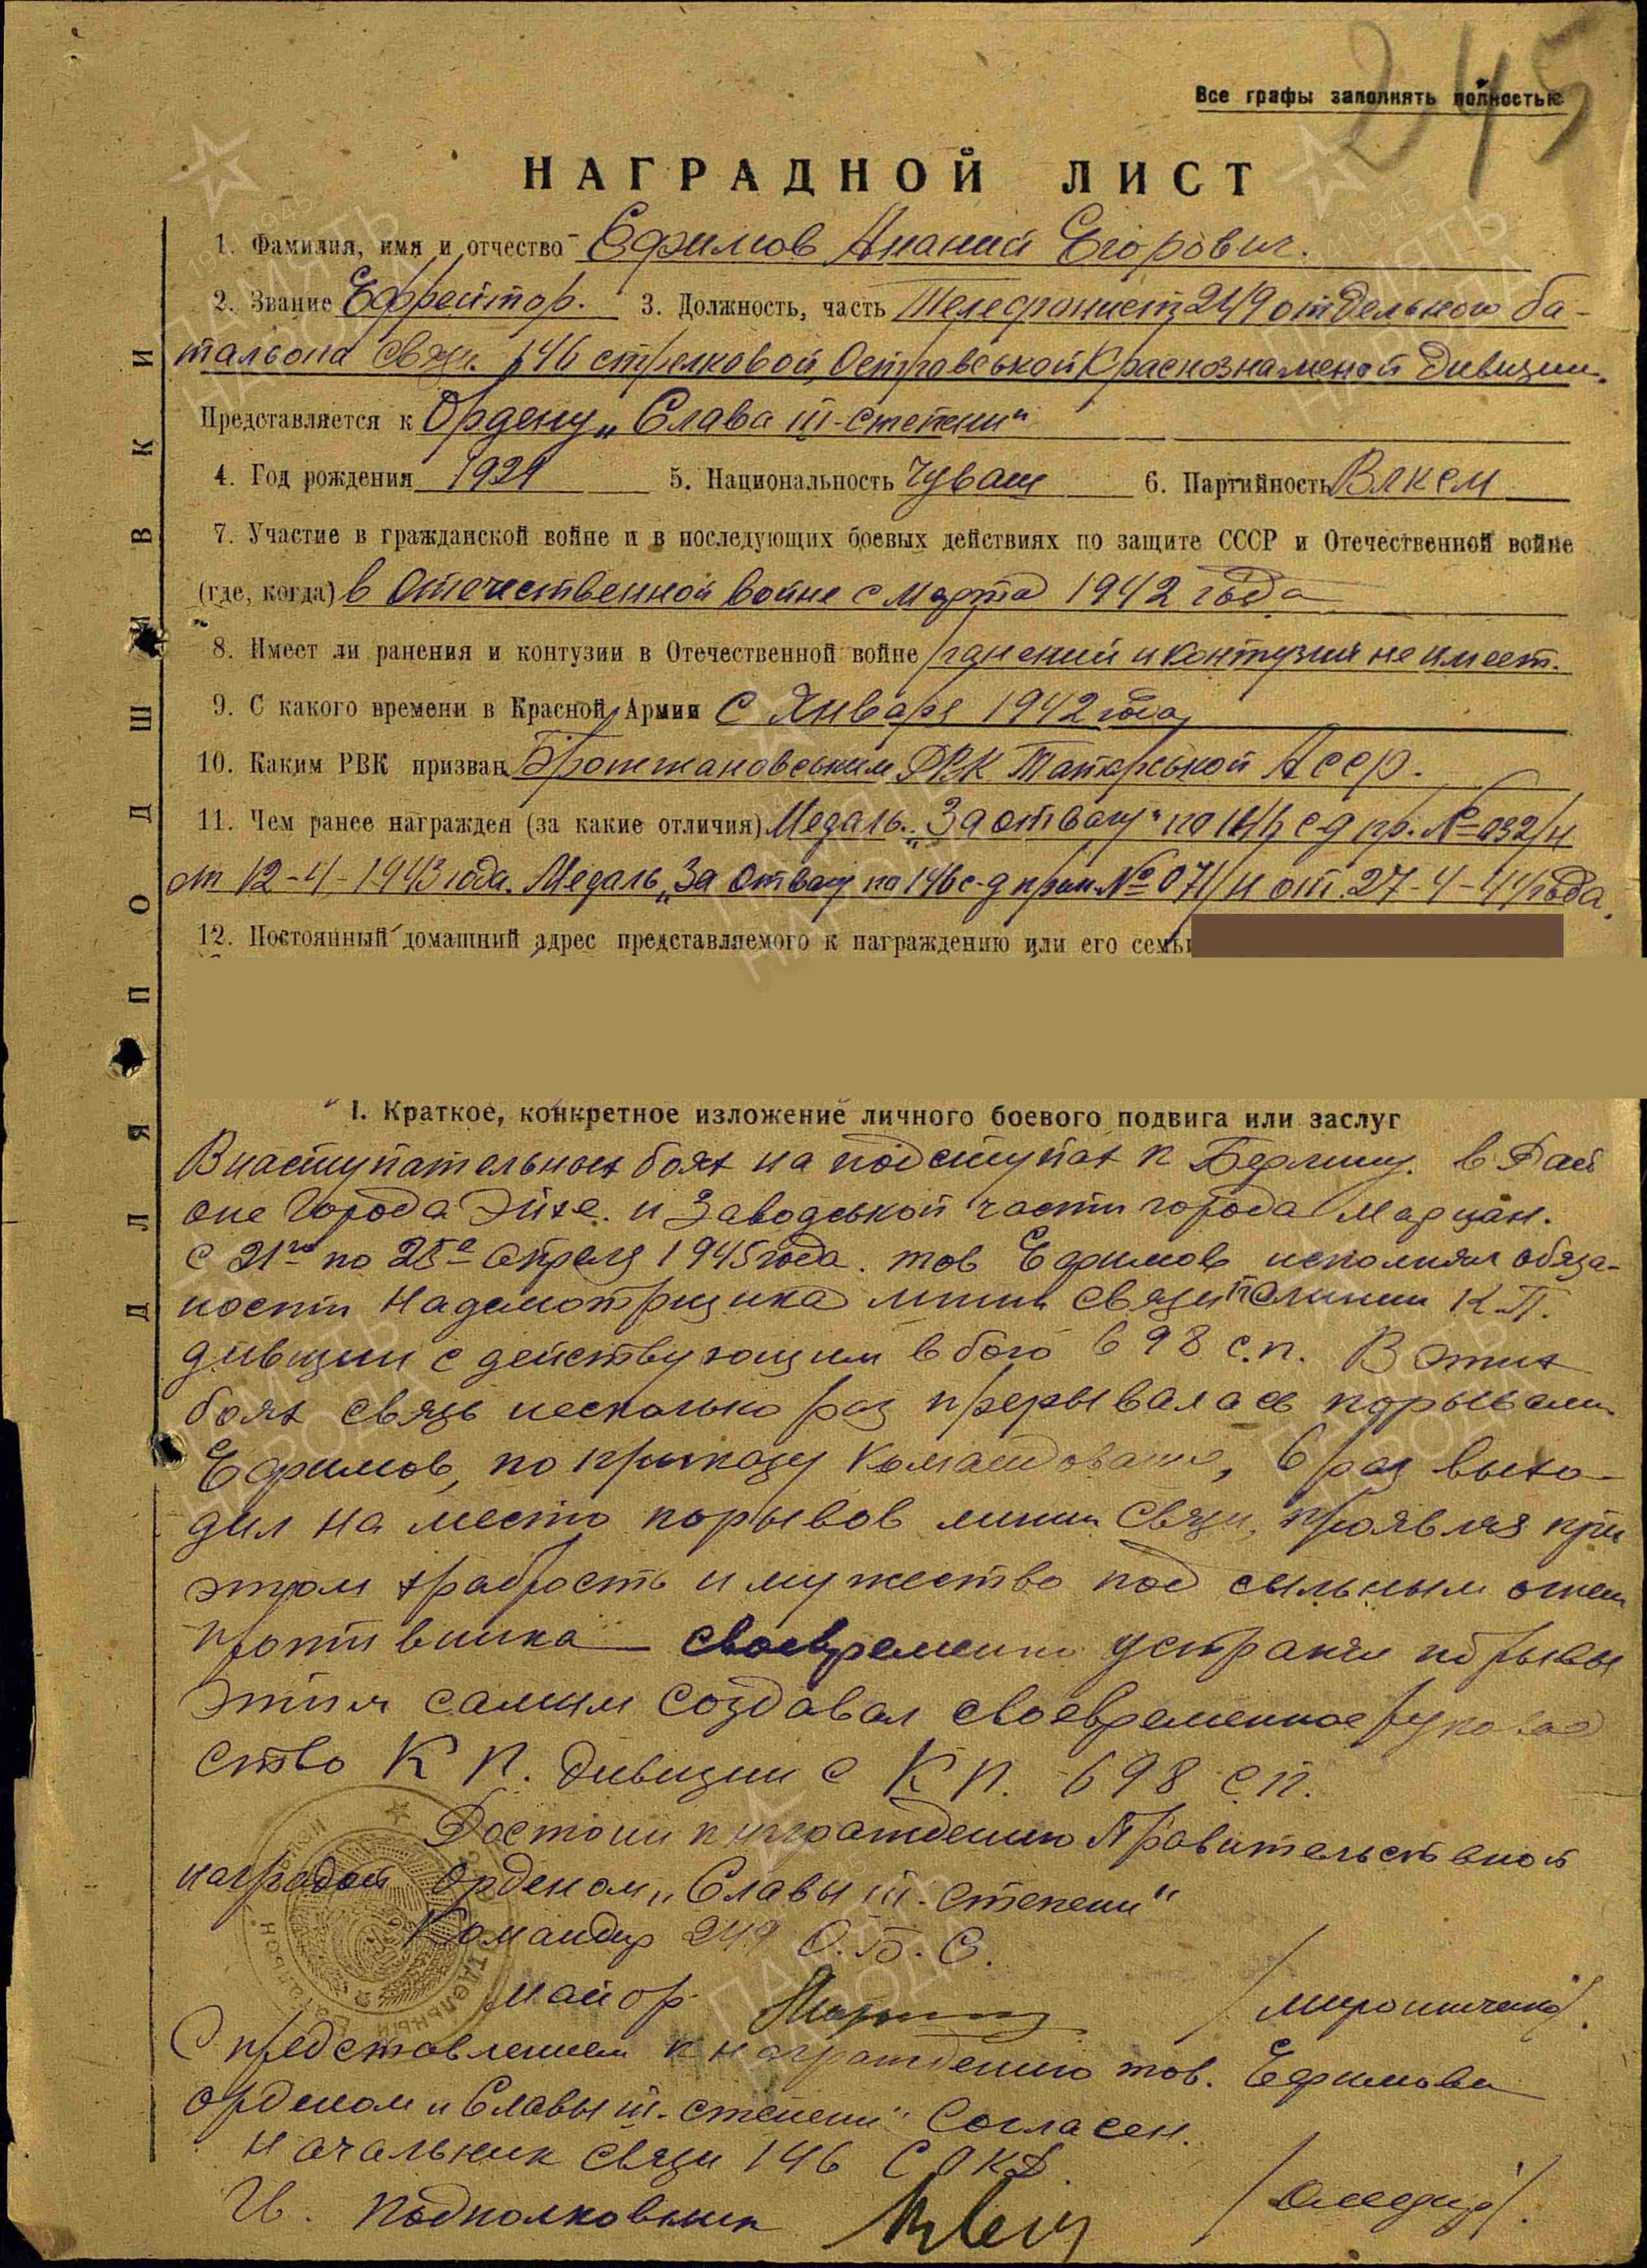 245
Все графы заполнять полностью
НАГРАДНОЙ ЛИСТ
1. Фамилия, имя и отчество Ефимов Ананий Егорович.
2. Звание Ефрейтор. 3. Должность, часть Телефонист 249 отдельного ба-
тальона связи 146 стрелковой, Островськой Краснознаменой дивизии.
Представляется к Ордену „Слава III-степени"
4. Год рождения 1921 5. Национальность Чуваш 6. Партийность ВЛКСМ
7. Участие в гражданской войне и в последующих боевых действиях по защите СССР и Отечественной войне
(где, когда) в Отечественной войне с Марта 1942 года
8. Имеет ли ранения и контузии в Отечественной войне ранений и контузий не имеет.
9. С какого времени в Красной Армии С Января 1942 года
10. Каким РВК призван РВК Татарськой Асср.
11. Чем ранее награжден (за какие отличия) Медаль „За отвагу" по 146 с д пр. № 032/н
от 12-4-1943 года. Медаль „За отвагу по 146 с-д прик. № 071/н от 27-4-44 года.
12. Постоянный домашний адрес представляемого к награждению или его семьи
ДЛЯ ПОДШИВКИ
I. Краткое, конкретное изложение личного боевого подвига или заслуг
В наступательных боях на подступах к Берлину. в Рай
оне города Эйхе. и Заводськой части города Марцан.
с 21го по 25е апреля 1945 года. тов Ефимов исполнял обяза-
ности надсмотрщика линии связи по линии К.П.
дивизии с действующим в бою 698 с.п. В этих
боях связь несколько раз прерывалась порывами
Ефимов, по приказу командования, 6 раз выхо-
дил на место порывов линии связи, проявляя при
этом храбрость и мужество под сильным огнем
противника своевременно устранял порывы
этим самим создавал своевременное руковод
ство К П. дивизии с К П. 698 с.п.
Достоин к награждению Правительственой
наградой орденом „Славы III-степени"
Командир 249 О.Б.С.
майор /Мирошниченко/.
С представлением к награждению тов. Ефимова
орденом „Славы III-степени" Согласен.
Начальник связи 146 СОКД.
подполковник
ПАМЯТЬ НАРОДА